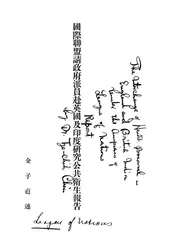 The Interchange of Health Personnel in
England and British India
Under the Auspices of
League of Nations
Report
by Dr.
國際聯盟請政府派員赴英國及印度研究公共衛生報告
金子直述
League of Nations